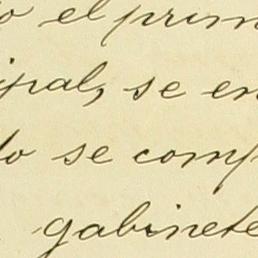 o el prim
ipal, se en
do se comp
gabinete